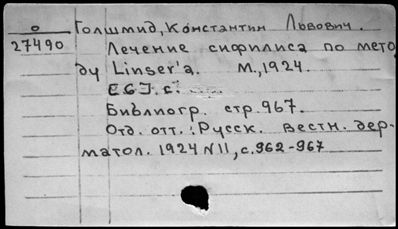 о Голшмид, Константин Львович.
27490 Лечение сифилиса по мето
ду Linser'a. М., 1924.
Библиогр. стр. 967.
Отд. отт.: Русск. вестн. дер-
матол. 1924 N11, с. 962-967